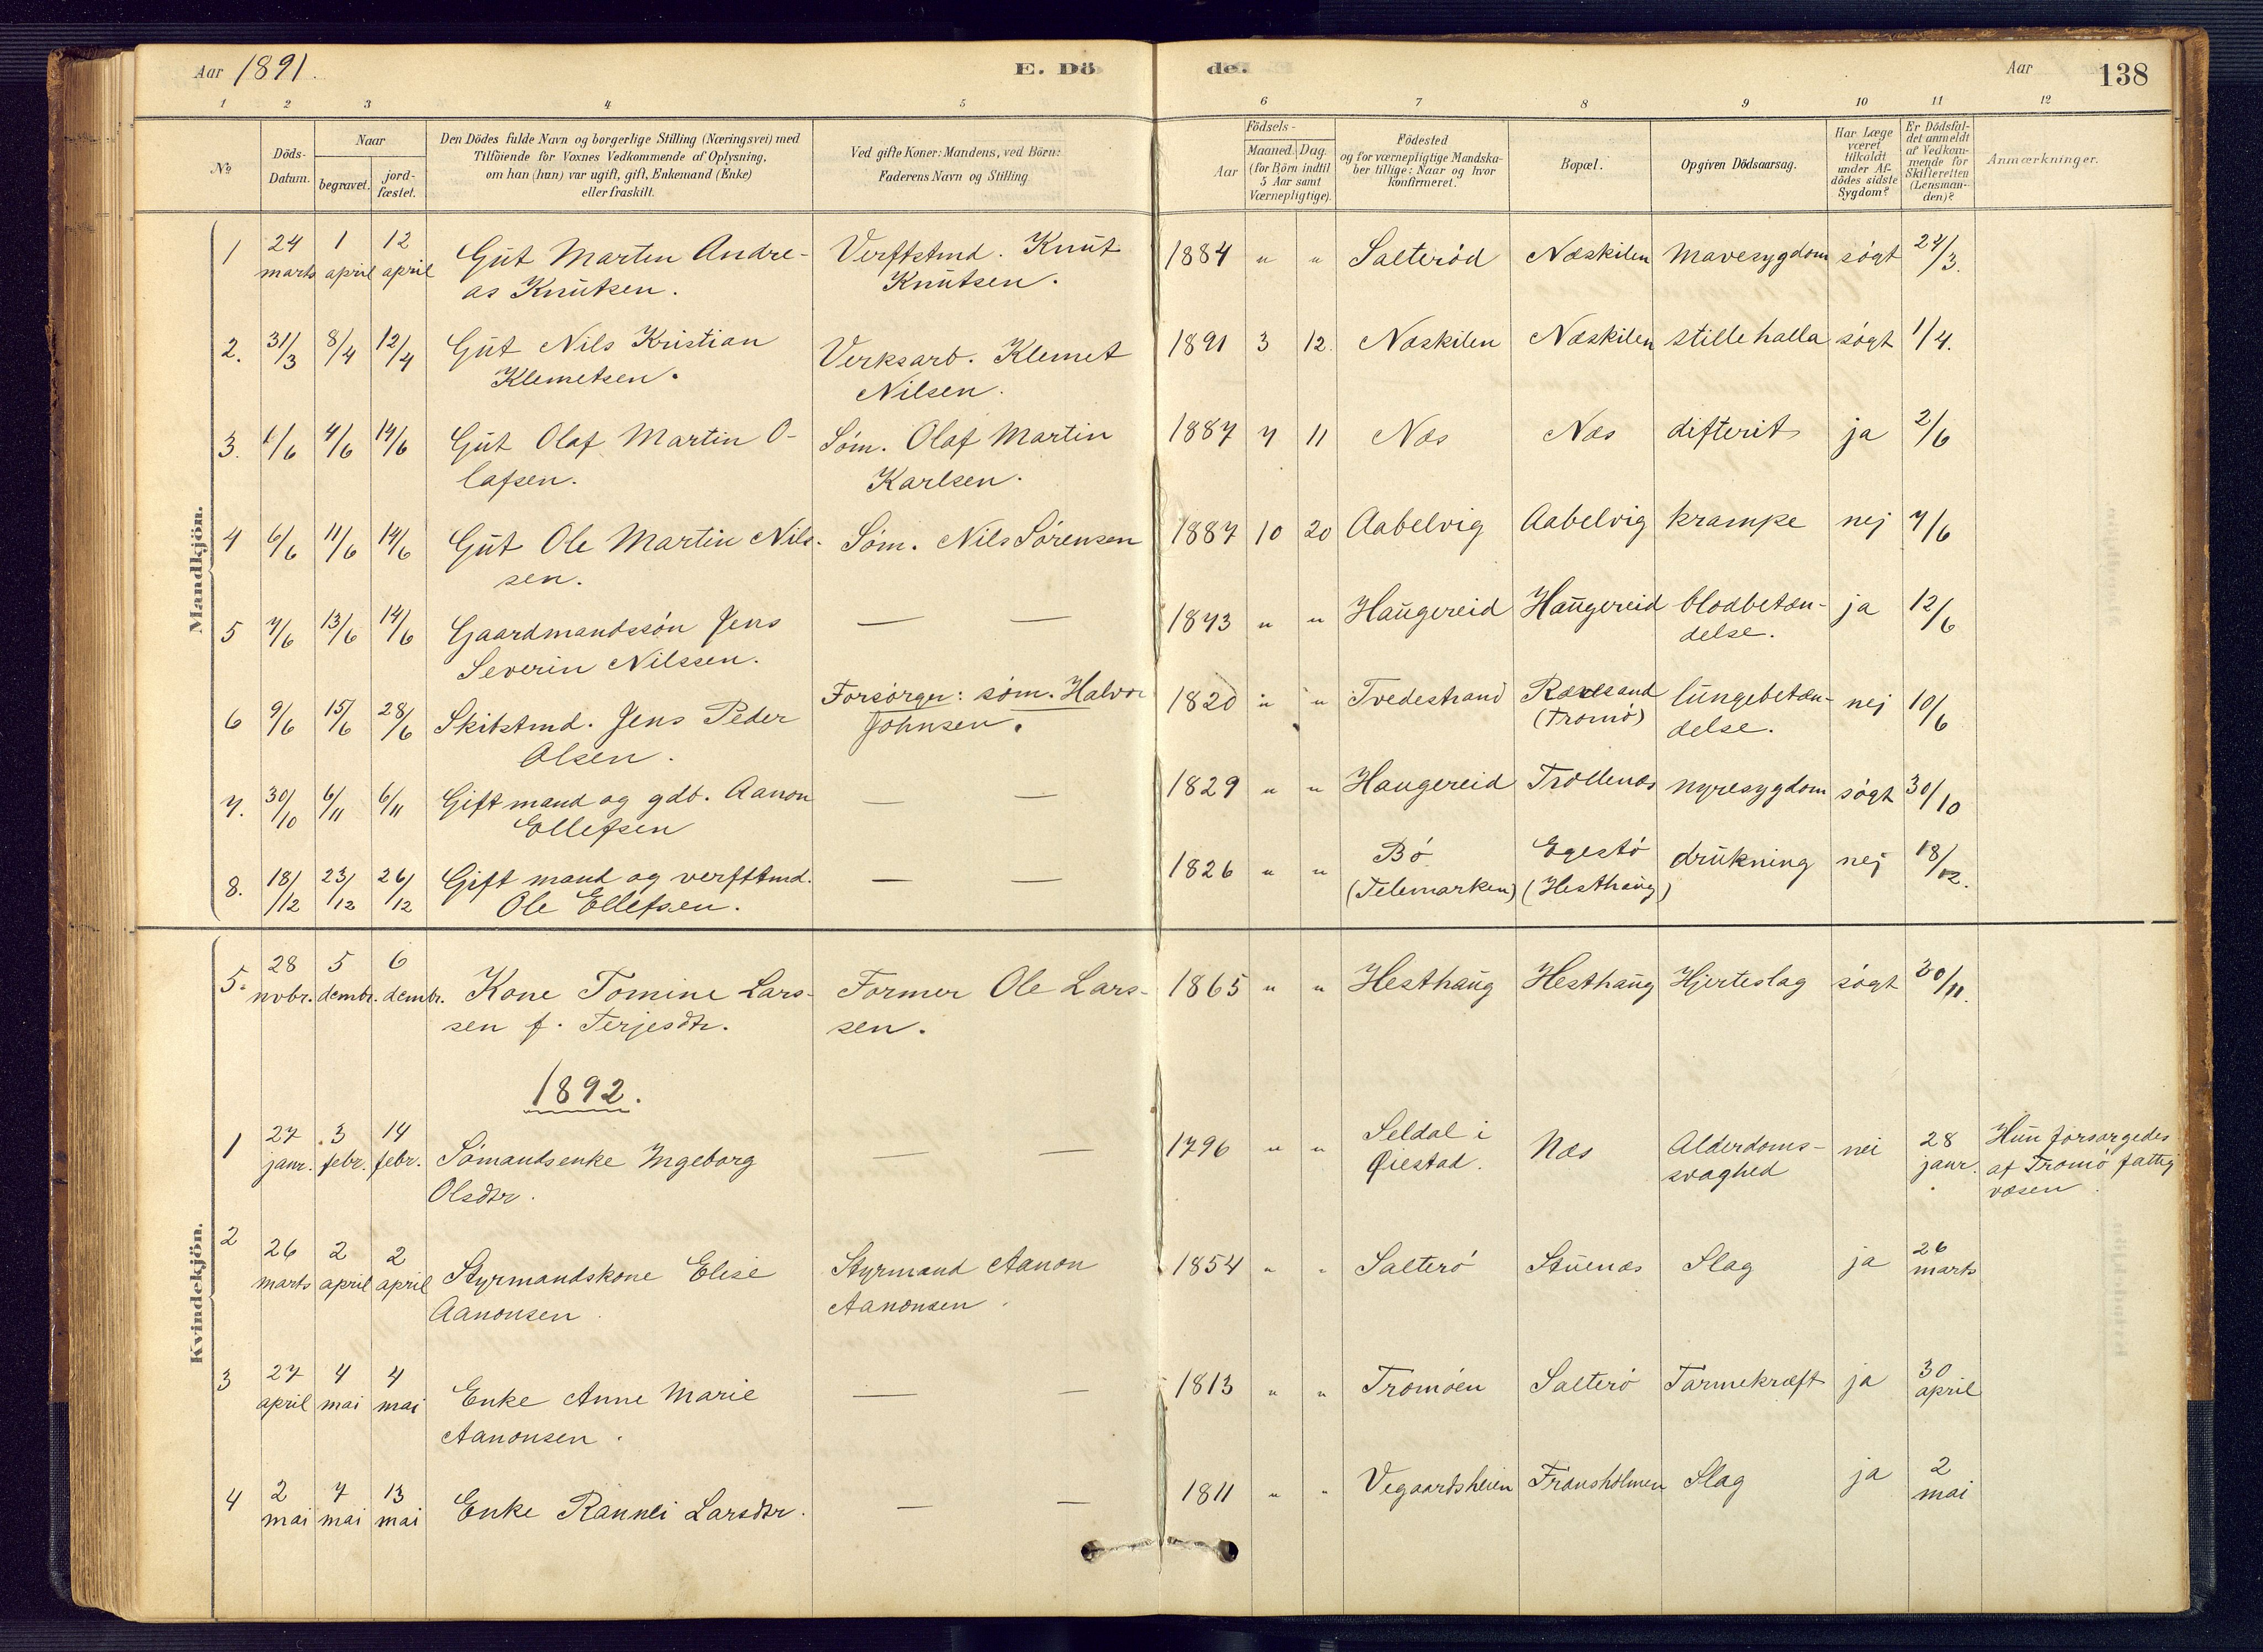 Aar 1891.
E. Dö
de.
Aar
138
1 2 3 4 5 6 7 8 9 10 11 12
No
Döds-
Datum.
Naar
begravet.
jord-
fæstet.
Den Dödes fulde Navn og borgerlige Stilling (Næringsvei) med
Tilföiende for Voxnes Vedkommende af Oplysning,
om han (hun) var ugift, gift, Enkemand (Enke)
eller fraskilt.
Ved gifte Koner: Mandens, ved Börn:
Faderens Navn og Stilling
Födsels-
Aar
Maaned. Dag.
(for Börn indtil
5 Aar samt
Værnepligtige).
Födested
og for værnepligtige Mandska-
ber tillige: Naar og hvor
konfirmeret.
Bopæl.
Opgiven Dödsaarsag.
Har Læge
været
tilkaldt
under Af-
dödes sidste
Sygdom?
Er Dödsfal-
det anmeldt
af Vedkom-
mende for
Skifteretten
(Lensman-
den)?
Anmærkninger.
Mandkjön.
1 24 1 12 Gut Marten Andre- Verftstmd. Knut 1884 " " Salterød Næskilen Mavesygdom søgt 24/3.
marts april april as Knutsen. Knutsen.
2. 31/3 8/4 12/4 Gut Nils Kristian Verksarb. Klemet 1891 3 12. Næskilen Næskilen stillehalla søgt 1/4.
Klemetsen. Nilsen.
3. 1/6 4/6 14/6 Gut Olaf Martin O- Søm. Olaf Martin 1887 7 11 Næs Næs difterit ja 2/6
lafsen. Karlsen.
4 6/6 11/6 14/6 Gut Ole Martin Nils- Søm. Nils Sørensen 1887 10 20 Aabelvig Aabelvig krampe nej 7/6
sen.
5 7/6 13/6 14/6 Gaardmandssøn Jens — — 1873 " " Haugereid Haugereid blodbetæn- ja 12/6
Severin Nilssen. delse.
6 9/6 15/6 28/6 Skibstmd. Jens Peder Forsørger: søm. Halvor 1820 " " Tvedestrand Rævesand lungebetæn- nej 10/6
Olsen. Johnsen. (Tromø) delse.
7. 30/10 6/11 6/11 Gift mand og gdb. Aanon — — 1829 " " Haugereid Trollenæs nyresygdom søgt 30/10
Ellefsen
8. 18/12 23/12 26/12 Gift mand og verfttmd. — — 1826 " " Bø Egestø drukning nej 18/12.
Ole Ellefsen. (Telemarken) (Hesthaug)
Kvindekjön.
5. 28 5 6 Kone Tomine Lars- Former Ole Lars- 1865 " " Hesthaug Hesthaug Hjerteslag søgt 30/11.
nvbr. dcmbr. dcmbr. sen f. Terjesdtr. sen.
1892.
1 27 3 14 Sømandsenke Ingeborg — — 1796 " " Seldal i Næs Alderdoms- nei 28 Hun forsørgedes
janr. febr. febr. Olsdtr. Øiestad. svaghed janr. af Tromø fattig
væsen
2 26 2 2 Styrmandskone Elise Styrmand Aanon 1854 " " Salterø Stuenæs Slag ja 26
marts april april Aanonsen Aanonsen marts
3 27 4 4 Enke Anne Marie — — 1813 " " Tromøen Salterø Tarmekræft ja 30
april mai mai Aanonsen april
4 2 7 13 Enke Rannei Larsdtr. — — 1811 " " Vegaardsheien Fransholmen Slag ja 2
mai mai mai mai